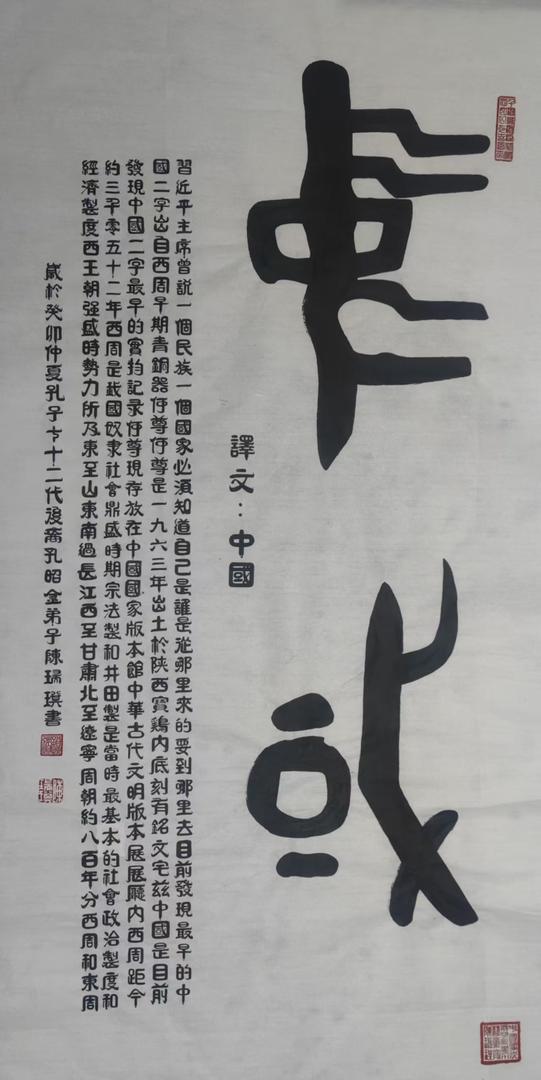 中國
譯文：中國
習近平主席曾説一個民族一個國家必須知道自己是誰是從哪里來的要到哪里去目前發現最早的中
國二字出自西周早期青銅器何尊何尊是一九六三年出土於陝西寶鷄内底刻有銘文宅兹中國是目前
發現中國二字最早的實物記录何尊現存放在中國國家版本館中華古代文明版本展展廳内西周距今
約三千零五十二年西周是我國奴隶社會鼎盛時期宗法製和井田製是當時最基本的社會政治製度和
經濟製度西王朝强盛時勢力所及東至山東南過長江西至甘肅北至遼寧周朝約八百年分西周和東周
歲於癸卯仲夏孔子七十二代後裔孔昭金弟子陳瑞書